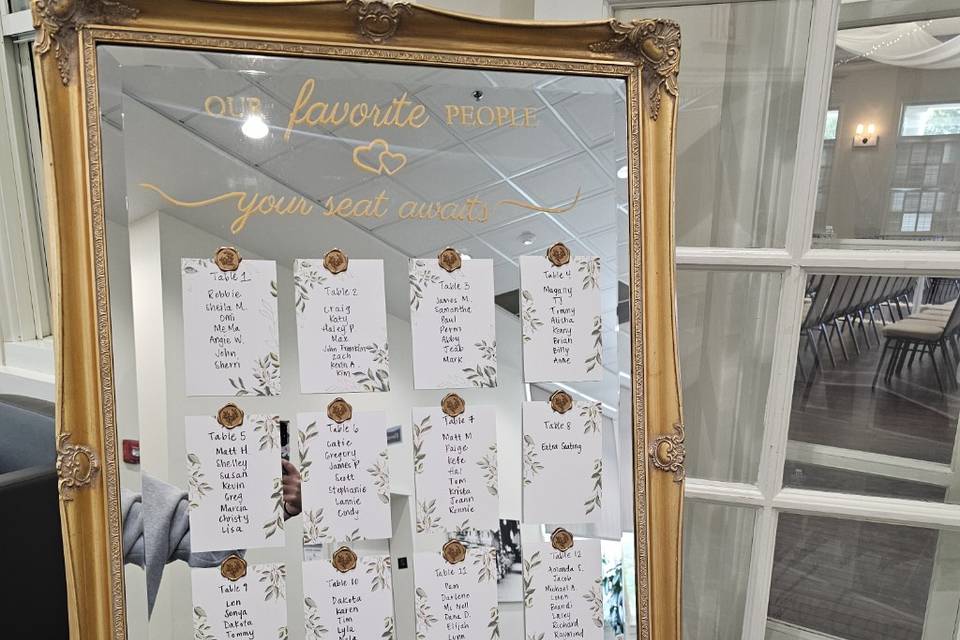 OUR favorite PEOPLE
your seat awaits
Table 1
Robbie
Sheila M.
Omi
MeMa
Angie W.
John
Sherri
Table 2
Craig
Katy
Haley P
Max
John Franklin
Zach
Kevin A.
Kim
Table 3
James M.
Samantha
Paul
Perm
Abby
Jeab
Mark
Table 4
Magany
TJ
Tommy
Alisha
Kenny
Brian
Billy
Anne
Table 5
Matt H
Shelley
Susan
Kevin
Greg
Marcia
Christy
Lisa
Table 6
Catie
Gregory
James P
Scott
Stephanie
Lannie
Cindy
Table 7
Matt M
Paige
Kefe
Hal
Tom
Krista
Jeann
Rennie
Table 8
Extra Seating
Table 9
Len
Sonya
Dakota
Tommy
Table 10
Dakota
Karen
Tim
Lyla
Table 11
Pam
Darlene
Ms Nell
Dana D.
Elijah
Table 12
Amanda S.
Jacob
Michael
Loren
Brandi
Laley
Richard
Raymond